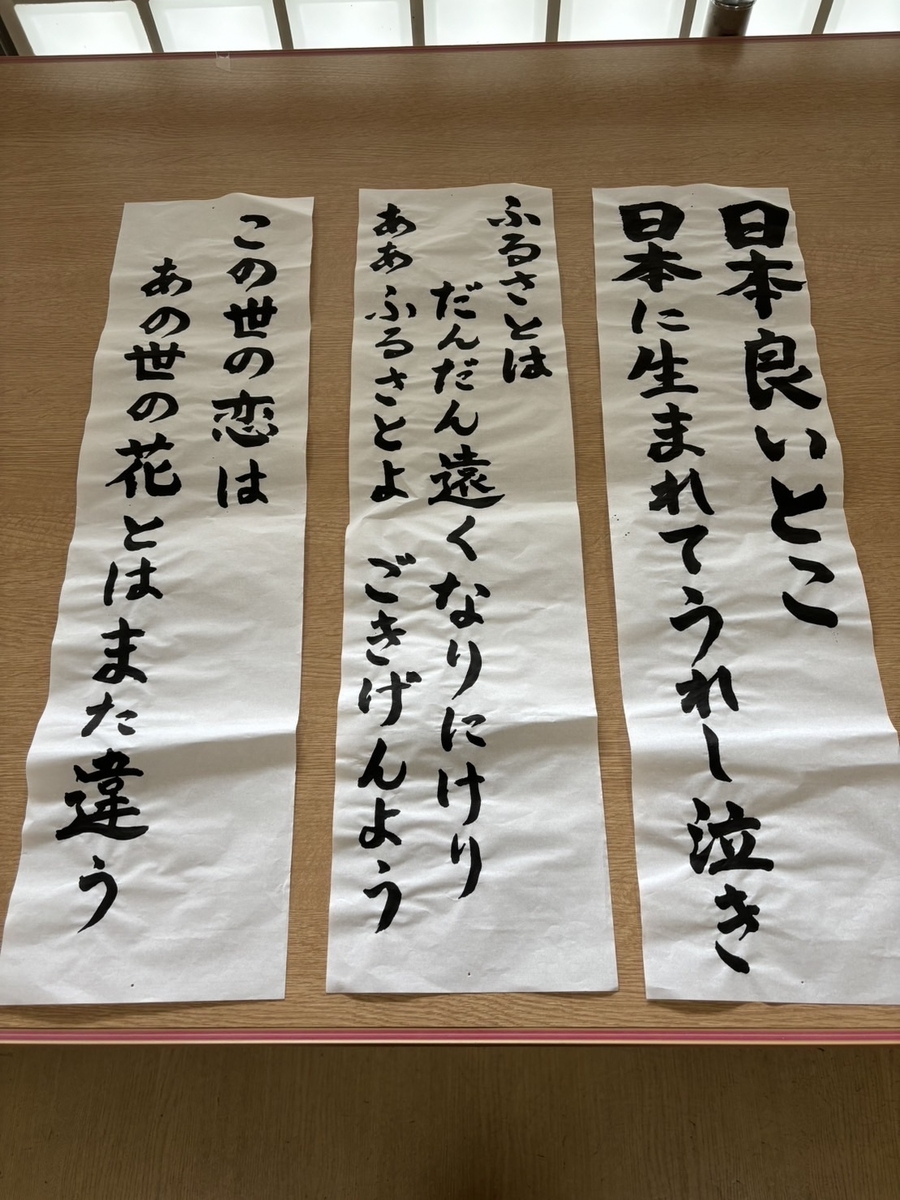 日本良いとこ
日本に生まれてうれし泣き
ふるさとは
だんだん遠くなりにけり
ああふるさとよ ごきげんよう
この世の恋は
あの世の花とはまた違う